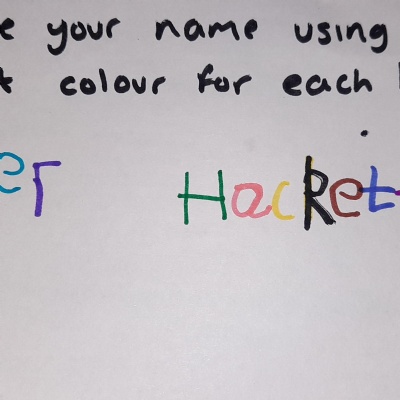 e your name using
t colour for each
er Hacket